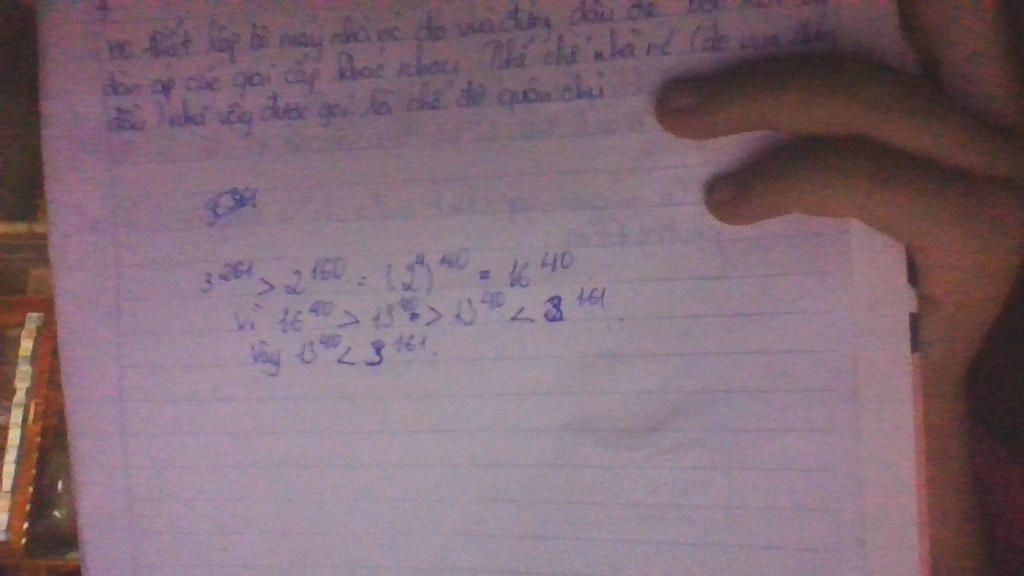 ra thiết lập bộ máy nhà nc do vua đứng đầu để
đàn áp các giai cấp khác nhau. Thể chế nhà nc (do vua đứng
đầu) như vậy được gọi là chế độ quân chủ
3^261 > 2^160 = (2^4)^40 = 16^40
Vì 16^40 > 13^40 > 13^40 < 3^161.
Vậy 13^40 < 3^161.